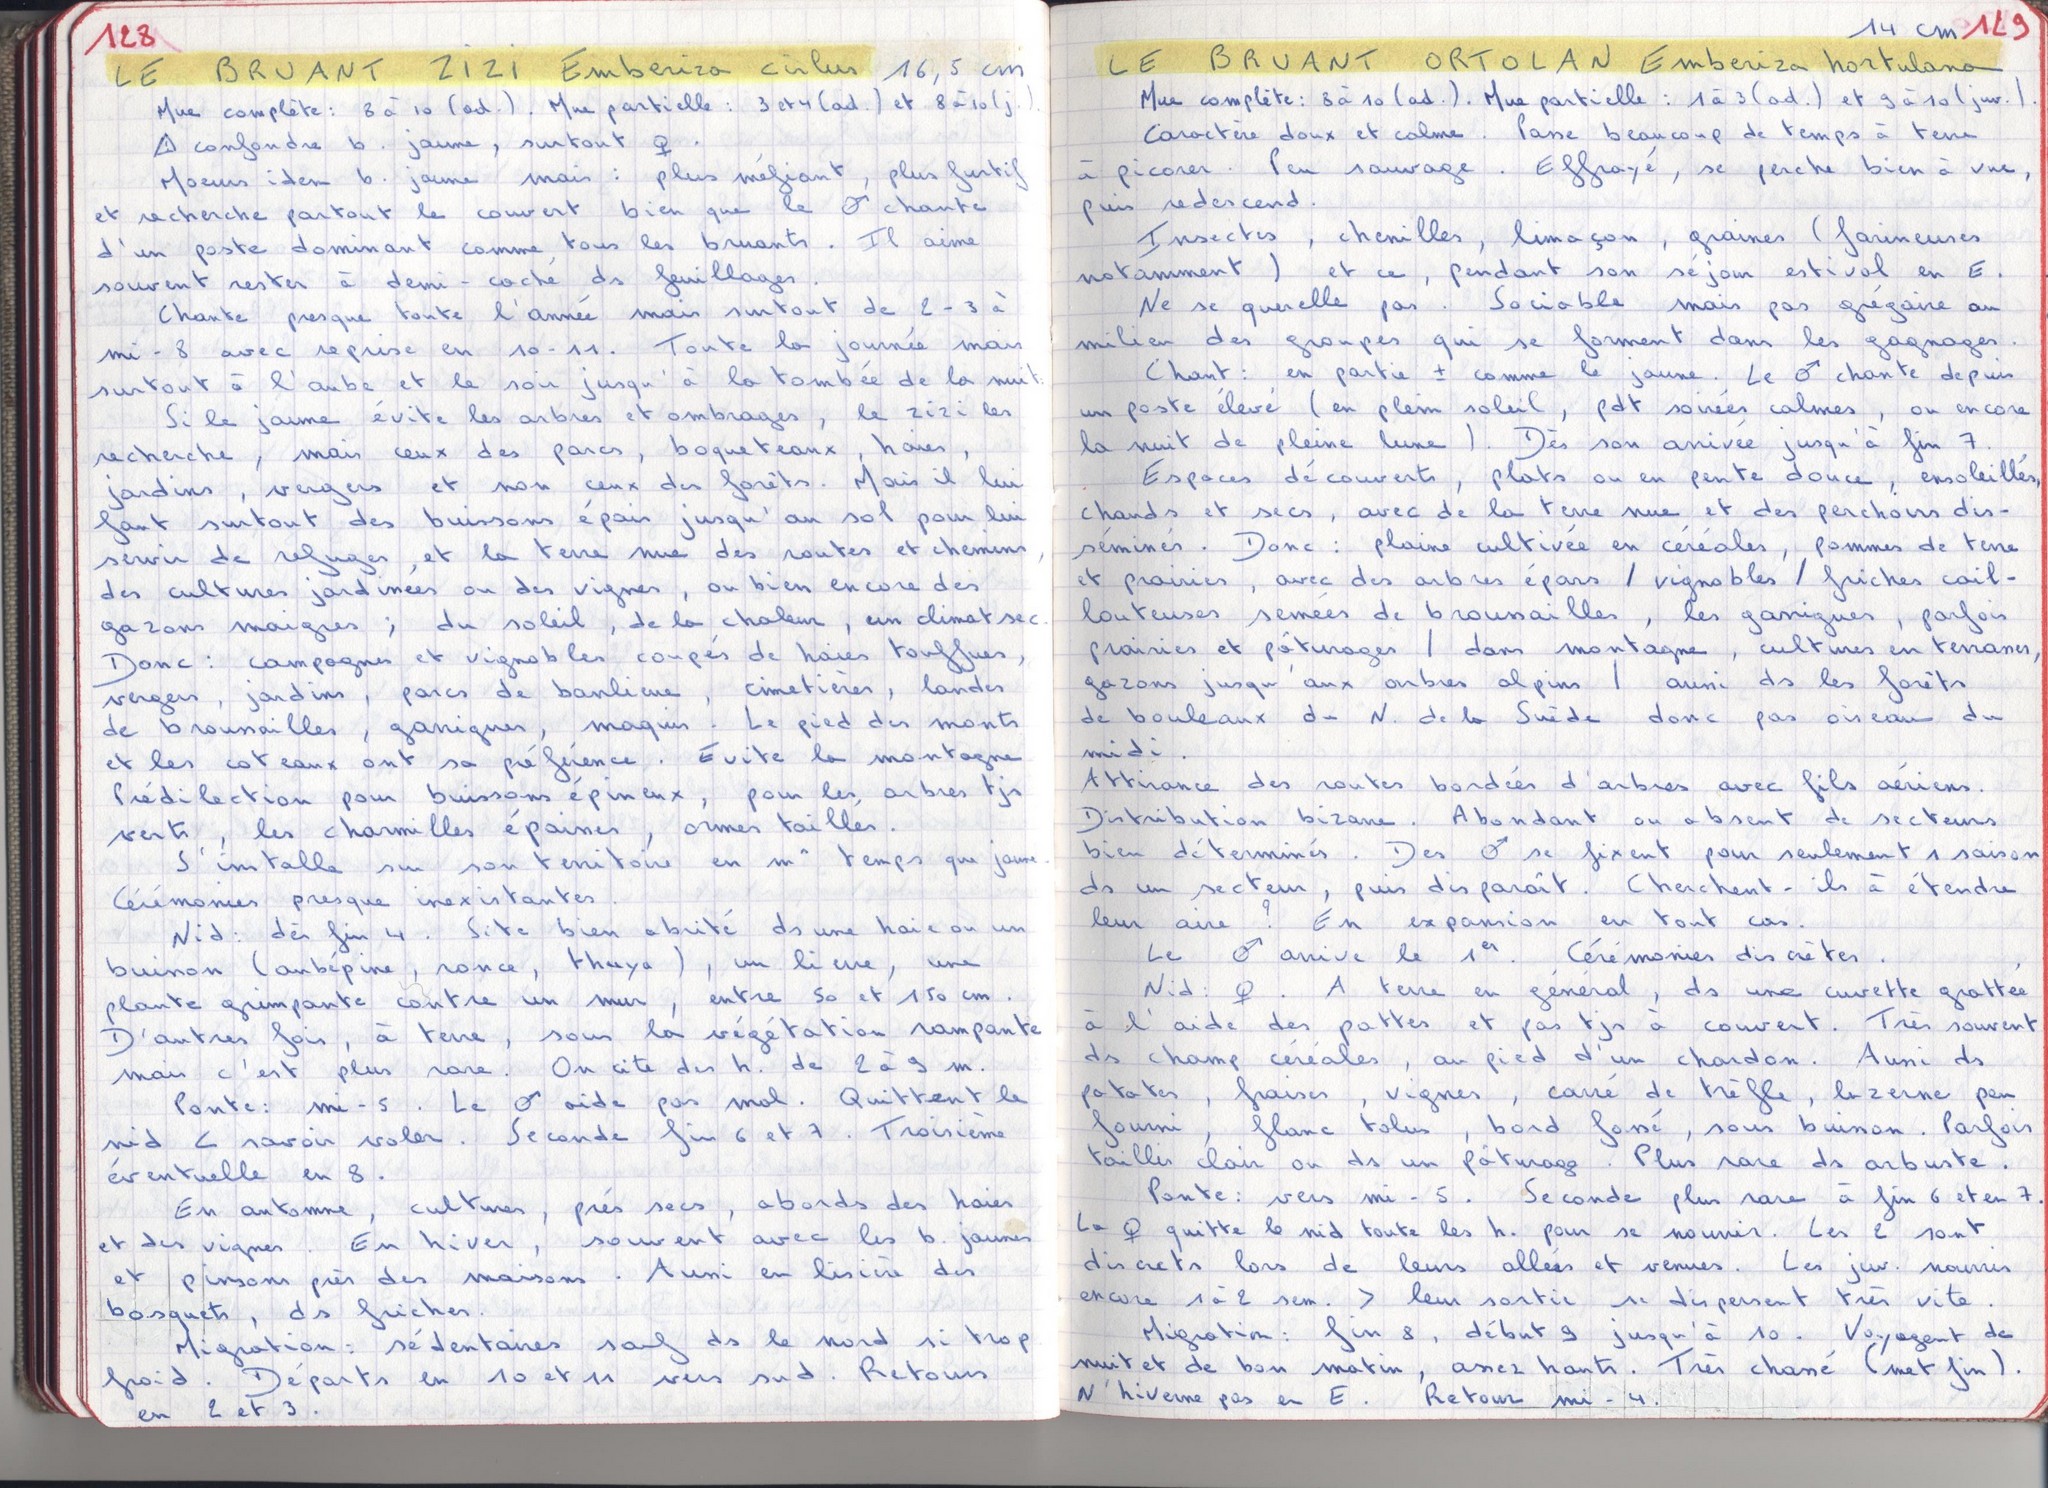 128
LE BRUANT ZIZI Emberiza cirlus 16,5 cm
Mue complète : 8 à 10 (ad.). Mue partielle : 3 et 4 (ad.) et 8 à 10 (j.).
⚠ confondre b. jaune, surtout ♀.
Moeurs idem b. jaune mais : plus méfiant, plus furtif
et recherche partout le couvert bien que le ♂ chante
d'un poste dominant comme tous les bruants. Il aime
souvent rester à demi-caché ds feuillages.
Chante presque toute l'année mais surtout de 2-3 à
mi-8 avec reprise en 10-11. Toute la journée mais
surtout à l'aube et le soir jusqu'à la tombée de la nuit.
Si le jaune évite les arbres et ombrages, le zizi les
recherche, mais ceux des parcs, boqueteaux, haies,
jardins, vergers et non ceux des forêts. Mais il lui
faut surtout des buissons épais jusqu'au sol pour lui
servir de refuges, et la terre nue des routes et chemins,
des cultures jardinées ou des vignes, ou bien encore des
gazons maigres ; du soleil, de la chaleur, un climat sec.
Donc : campagnes et vignobles coupés de haies touffues,
vergers, jardins, parcs de banlieue, cimetières, landes
de broussailles, garrigues, maquis. Le pied des monts
et les coteaux ont sa préférence. Evite la montagne
Prédilection pour buissons épineux, pour les arbres tjs
verts, les charmilles épaisses, ormes taillés.
S'installe sur son territoire en m^ temps que jaune.
Cérémonies presque inexistantes.
Nid : dès fin 4. Site bien abrité ds une haie ou un
buisson (aubépine, ronce, thuya), un lierre, une
plante grimpante contre un mur, entre 50 et 150 cm.
D'autres fois, à terre, sous la végétation rampante
mais c'est plus rare. On cite des h. de 2 à 9 m.
Ponte : mi-5. Le ♂ aide pas mal. Quittent le
nid < savoir voler. Seconde fin 6 et 7. Troisième
éventuelle en 8.
En automne, cultures, prés secs, abords des haies
et des vignes. En hiver, souvent avec les b. jaunes
et pinsons près des maisons. Aussi en lisière des
bosquets, ds friches.
Migration : sédentaires sauf ds le nord si trop
froid. Départs en 10 et 11 vers sud. Retours
en 2 et 3.
14 cm 129
LE BRUANT ORTOLAN Emberiza hortulana
Mue complète : 8 à 10 (ad.). Mue partielle : 1 à 3 (ad.) et 9 à 10 (juv.).
Caractère doux et calme. Passe beaucoup de temps à terre
à picorer. Peu sauvage. Effrayé, se perche bien à vue,
puis redescend.
Insectes, chenilles, limaçon, graines (farineuses
notamment) et ce, pendant son séjour estival en E.
Ne se querelle pas. Sociable mais pas grégaire au
milieu des groupes qui se forment dans les gagnages.
Chant : en partie ± comme le jaune. Le ♂ chante depuis
un poste élevé (en plein soleil, pdt soirées calmes, ou encore
la nuit de pleine lune). Dès son arrivée jusqu'à fin 7.
Espaces découverts, plats ou en pente douce, ensoleillés,
chauds et secs, avec de la terre nue et des perchoirs dis-
séminés. Donc : plaine cultivée en céréales, pommes de terre
et prairies, avec des arbres épars / vignobles / friches cail-
louteuses semées de broussailles, les garrigues, parfois
prairies et pâturages / dans montagne, cultures en terrasses,
gazons jusqu'aux arbres alpins / aussi ds les forêts
de bouleaux du N. de la Suède donc pas oiseau du
midi.
Attirance des routes bordées d'arbres avec fils aériens.
Distribution bizarre. Abondant ou absent de secteurs
bien déterminés. Des ♂ se fixent pour seulement 1 saison
ds un secteur, puis disparaît. Cherchent-ils à étendre
leur aire ? En expansion en tout cas.
Le ♂ arrive le 1er. Cérémonies discrètes.
Nid : ♀. A terre en général, ds une cuvette grattée
à l'aide des pattes et pas tjs à couvert. Très souvent
ds champ céréales, au pied d'un chardon. Aussi ds
patates, fraises, vignes, carré de trèfle, luzerne peu
fourni, flanc talus, bord fossé, sous buisson. Parfois
taillis clair ou ds un pâturage. Plus rare ds arbuste.
Ponte : vers mi-5. Seconde plus rare à fin 6 et en 7.
La ♀ quitte le nid toute les h. pour se nourrir. Les 2 sont
discrets lors de leurs allées et venues. Les juv. nourris
encore 1 à 2 sem. > leur sortie se dispersent très vite.
Migration : fin 8, début 9 jusqu'à 10. Voyagent de
nuit et de bon matin, assez hauts. Très chassé (met fin).
N'hiverne pas en E. Retour mi-4.